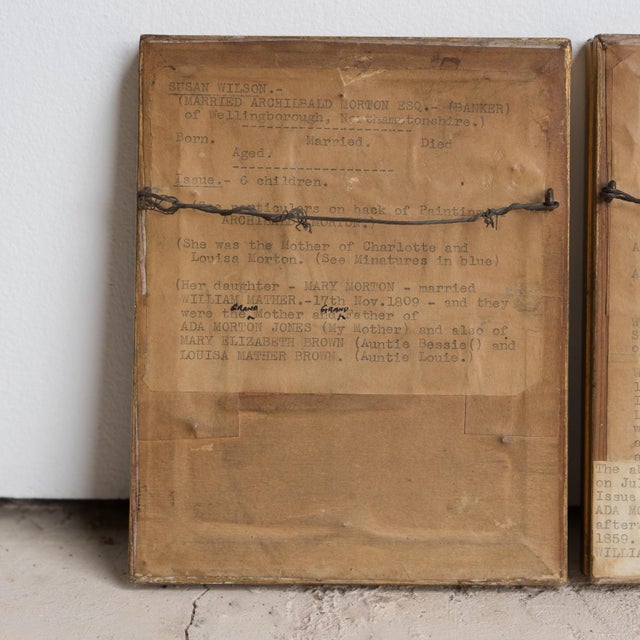 SUSAN WILSON.-
(MARRIED ARCHILBALD MORTON ESQ.- (BANKER)
of Wellingborough, Northamptonshire.)
Born. Married. Died
Aged.
Issue.- 6 children.
particulars on back of Painting
ARCHIBALD MORTON.)
(She was the Mother of Charlotte and
Louisa Morton. (See Minatures in blue)
(Her daughter - MARY MORTON - married
WILLIAM MATHER.-17th Nov.1809 - and they
were the GRAND Mother and GRAND father of
ADA MORTON JONES (My Mother) and also of
MARY ELIZABETH BROWN (Auntie Bessie() and
LOUISA MATHER BROWN. (Auntie Louie.)
The
on
Issue
ADA
after
1859.
WILLIA